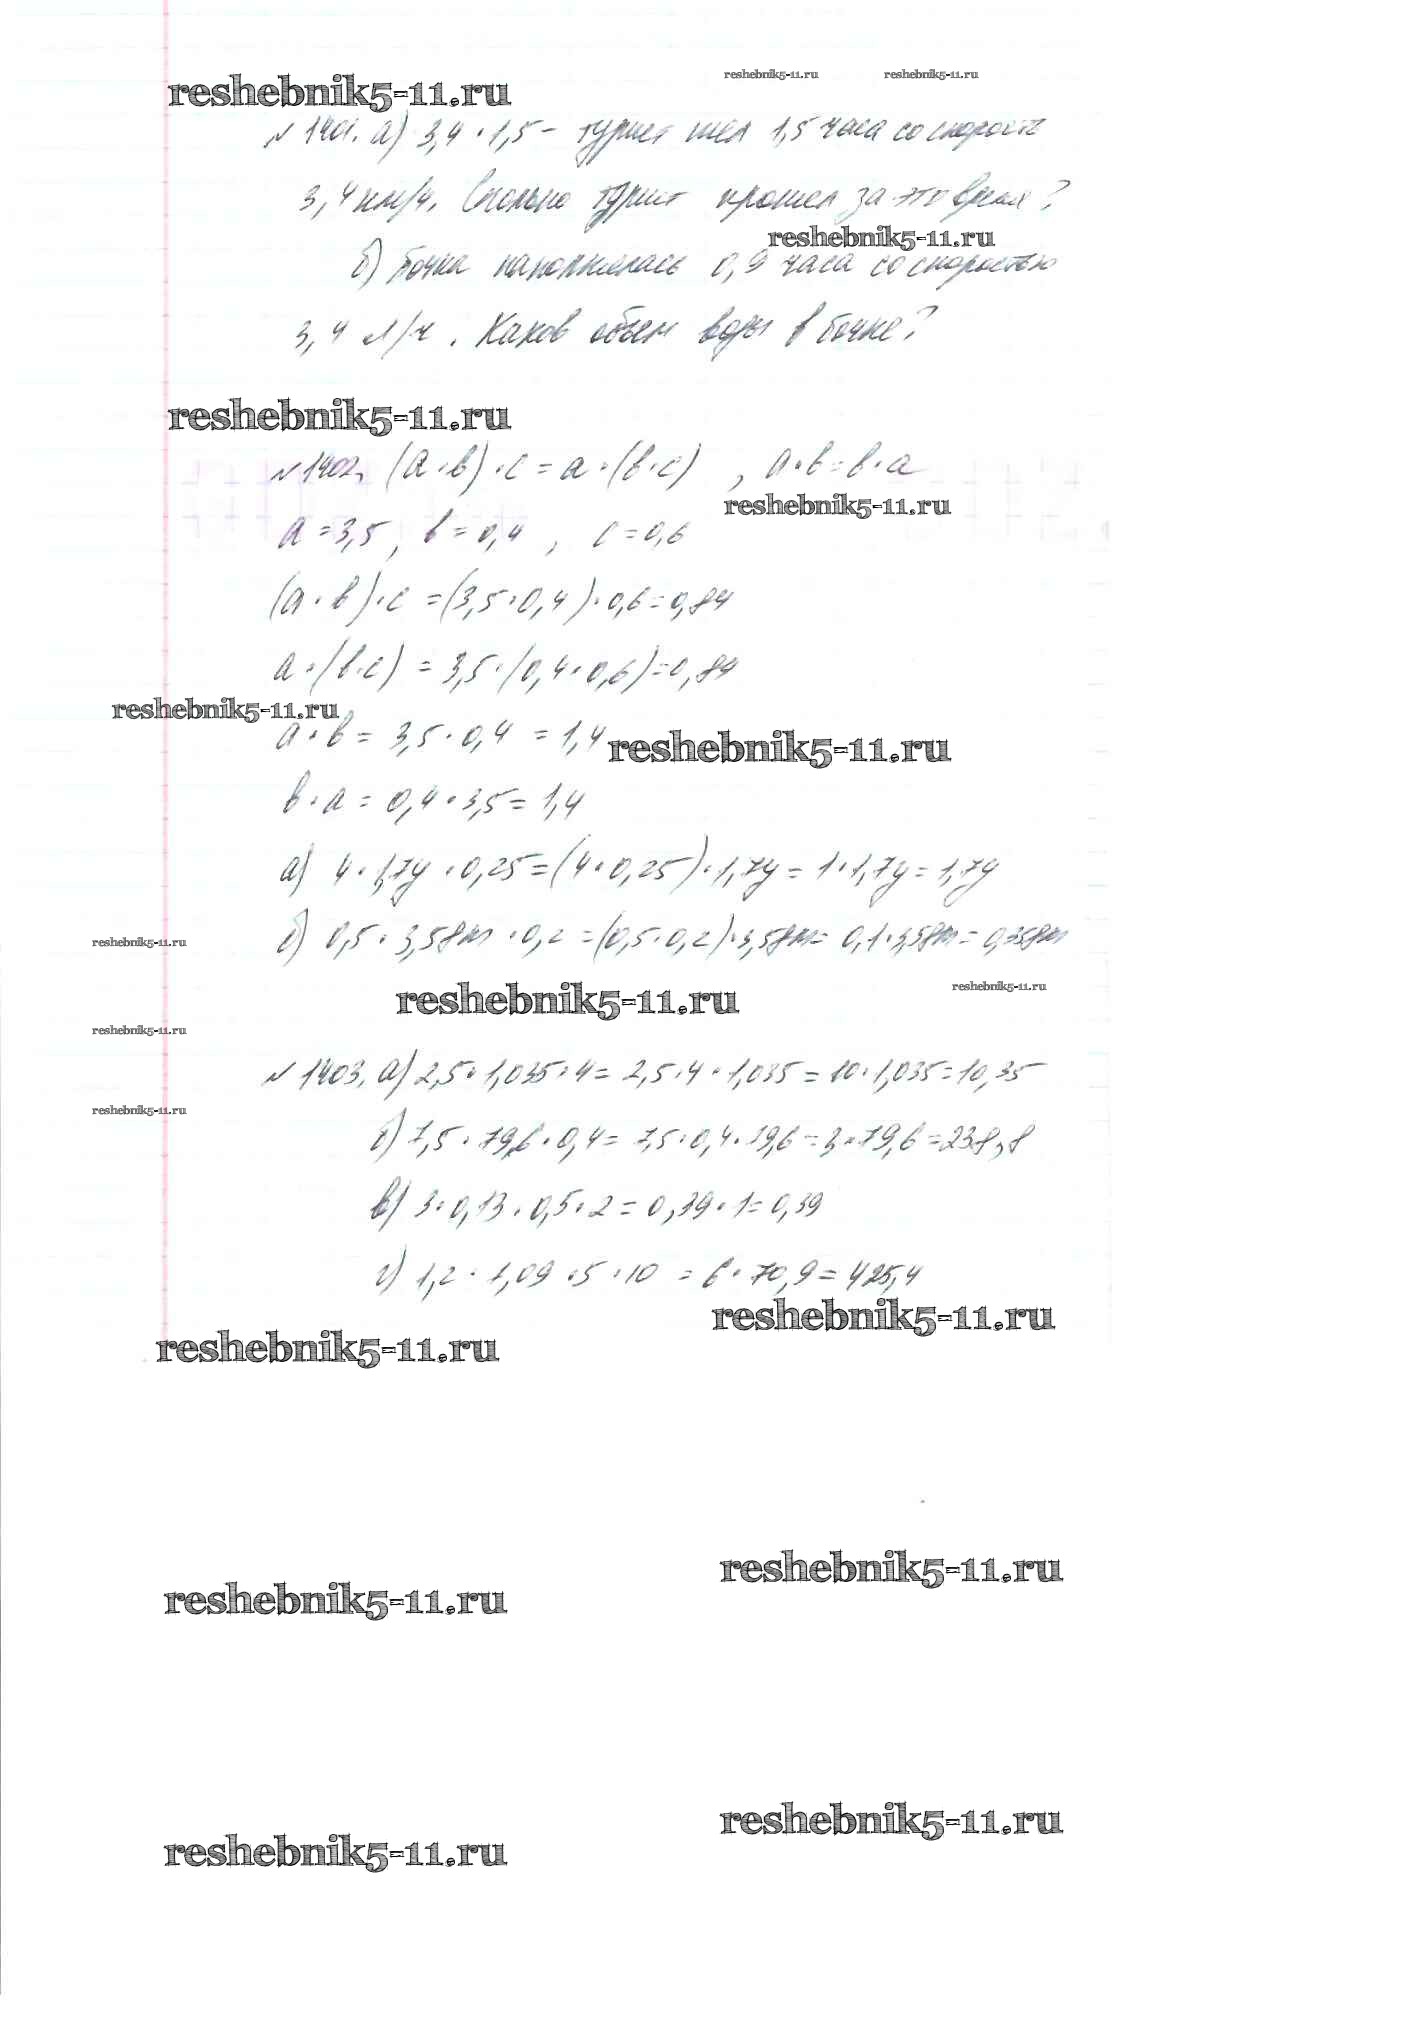 reshebnik5-11.ru reshebnik5-11.ru
reshebnik5-11.ru
№1401. а) 3,4 · 1,5 – турист шел 1,5 часа со скорость
3,4 км/ч. Сколько турист прошел за это время?
reshebnik5-11.ru
б) бочка наполнялась 0,9 часа со скоростью
3,4 л/ч. Каков объем воды в бочке?
reshebnik5-11.ru
№1402. (а · в) · с = а · (в · с) , а · в = в · а
reshebnik5-11.ru
а = 3,5 , в = 0,4 , с = 0,6
(а · в) · с = (3,5 · 0,4) · 0,6 = 0,84
а · (в · с) = 3,5 · (0,4 · 0,6) = 0,84
reshebnik5-11.ru
а · в = 3,5 · 0,4 = 1,4
reshebnik5-11.ru
в · а = 0,4 · 3,5 = 1,4
а) 4 · 1,7y · 0,25 = (4 · 0,25) · 1,7y = 1 · 1,7y = 1,7y
б) 0,5 · 3,58m · 0,2 = (0,5 · 0,2) · 3,58m = 0,1 · 3,58m = 0,358m
reshebnik5-11.ru
reshebnik5-11.ru
reshebnik5-11.ru
reshebnik5-11.ru
№1403. а) 2,5 · 1,035 · 4 = 2,5 · 4 · 1,035 = 10 · 1,035 = 10,35
reshebnik5-11.ru
б) 7,5 · 79,6 · 0,4 = 7,5 · 0,4 · 79,6 = 3 · 79,6 = 238,8
в) 3 · 0,13 · 0,5 · 2 = 0,39 · 1 = 0,39
г) 1,2 · 7,09 · 5 · 10 = 6 · 70,9 = 425,4
reshebnik5-11.ru
reshebnik5-11.ru
reshebnik5-11.ru
reshebnik5-11.ru
reshebnik5-11.ru
reshebnik5-11.ru